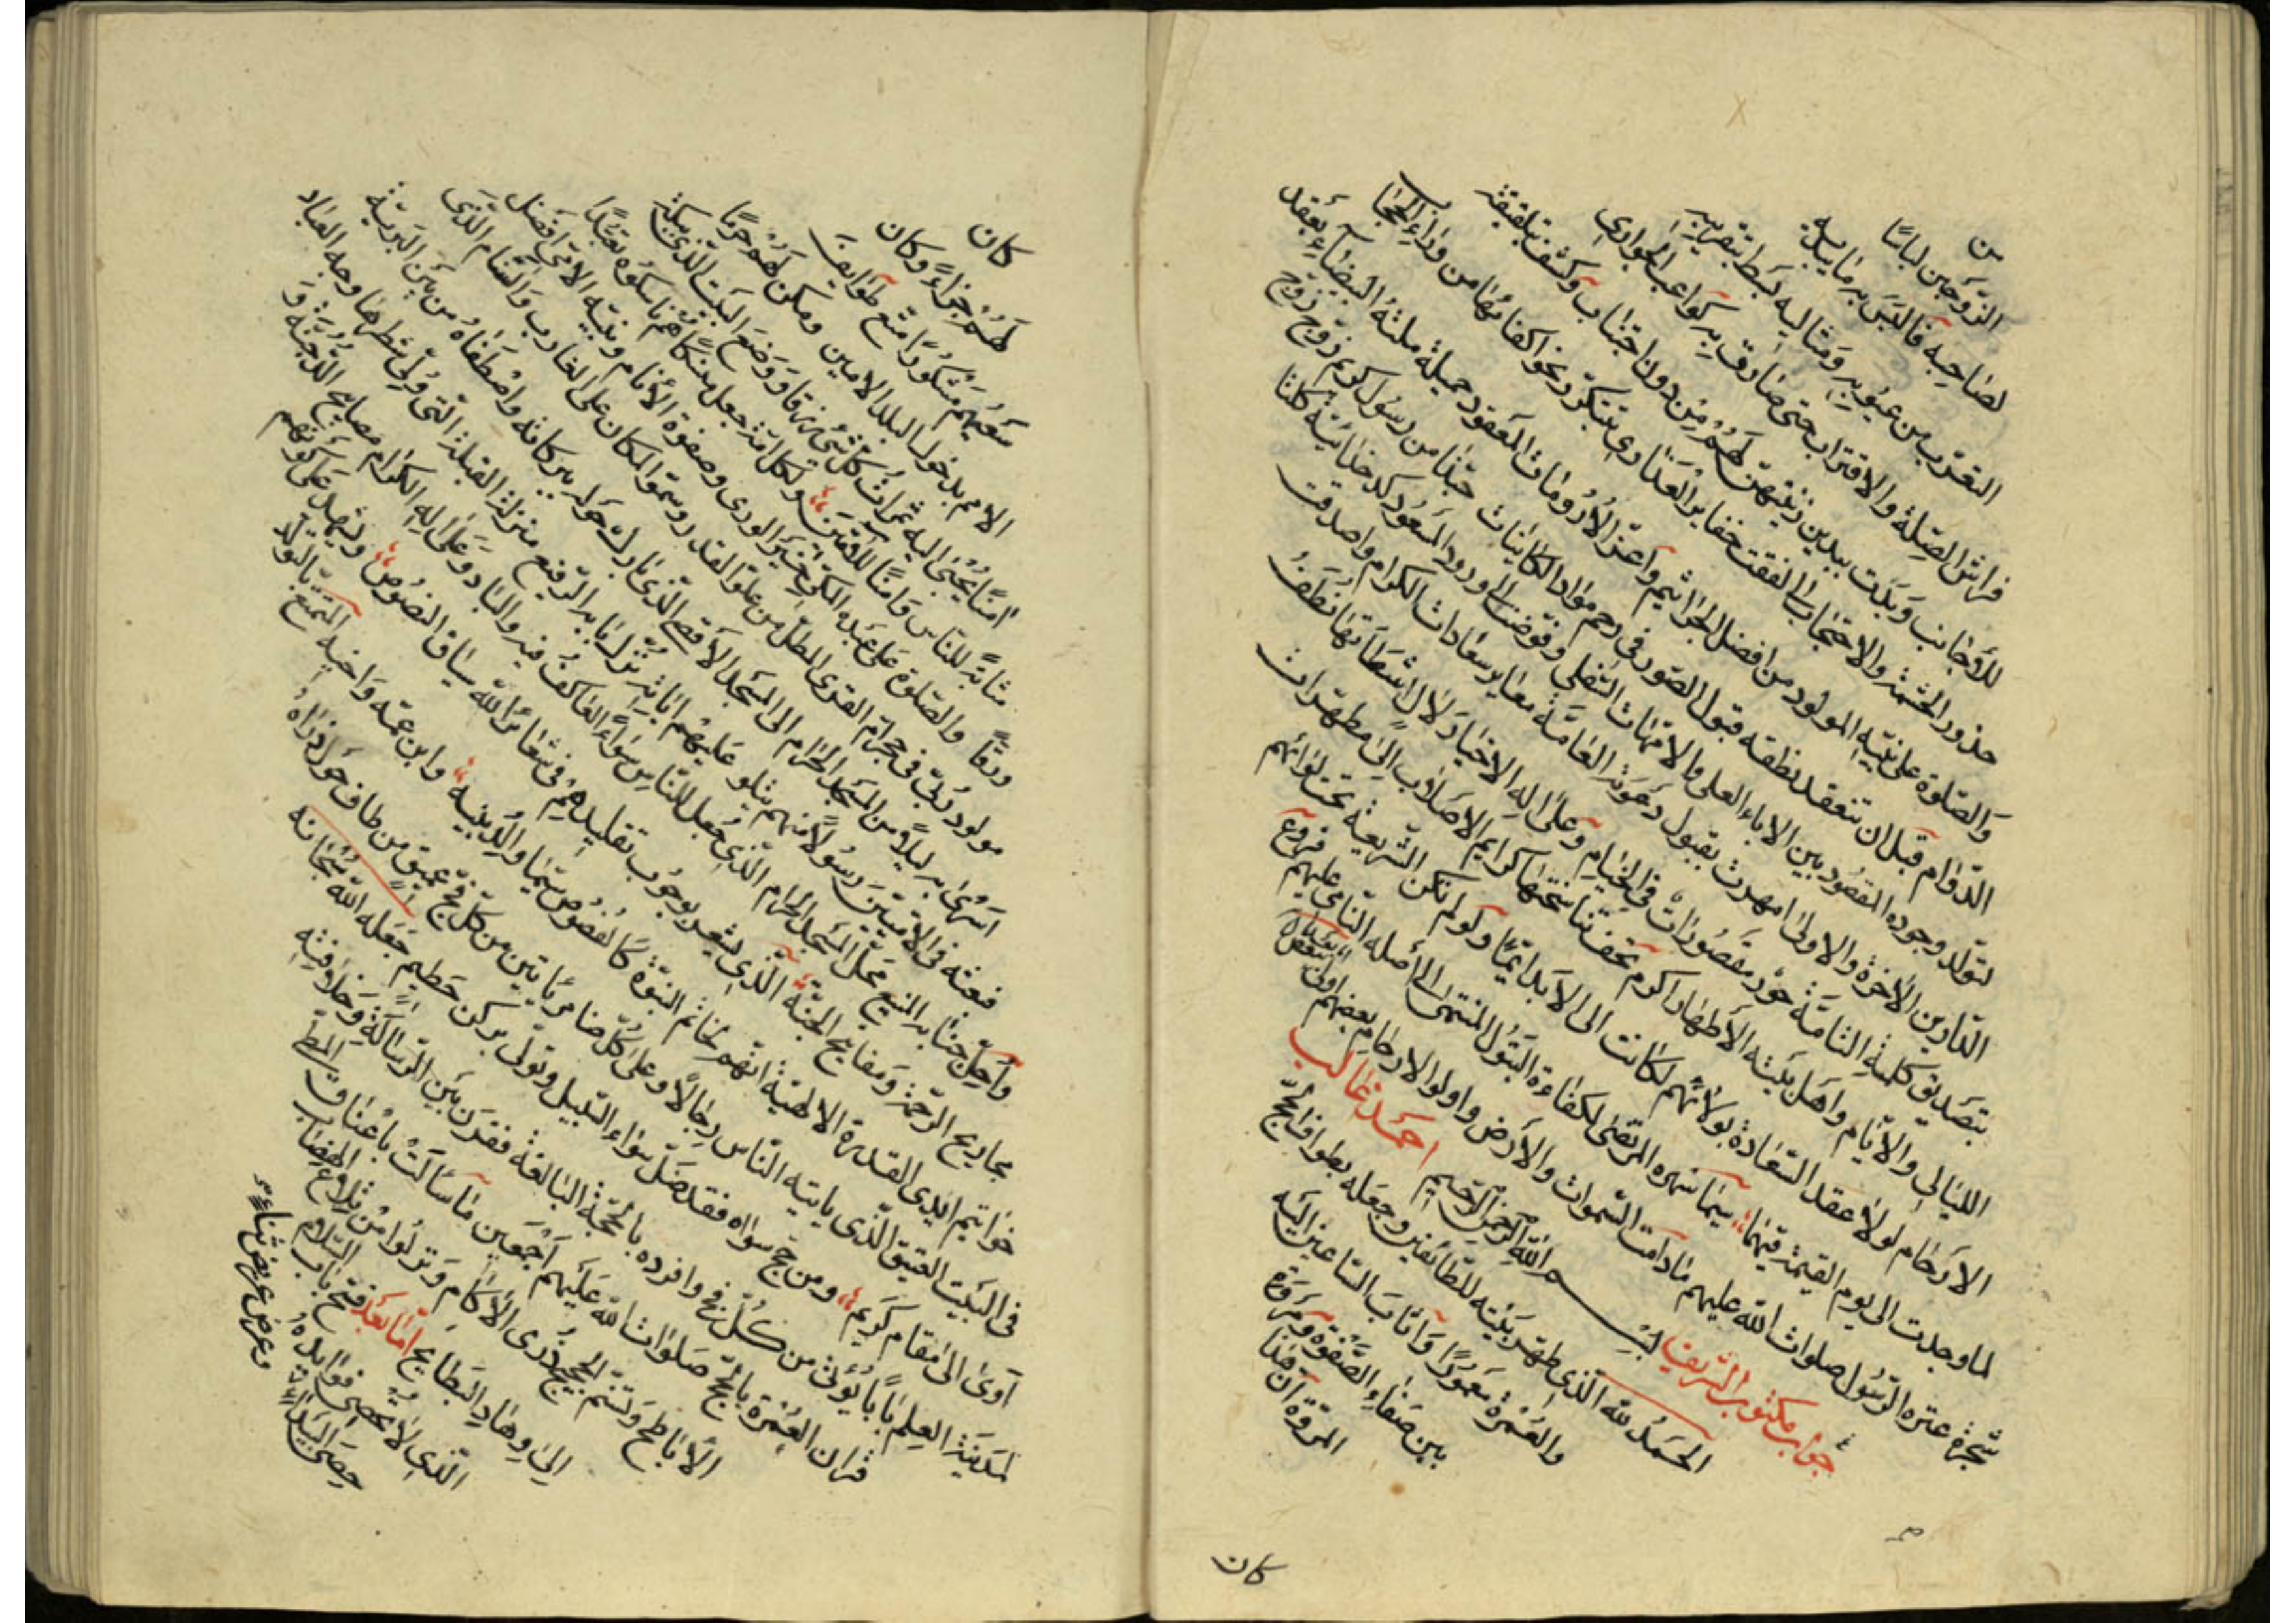 من
الزّوجين لباسًا
لصاحبه فالتبس به ما يليه
التعزّب من عيوبه ومثاليه بسط بتقريبه
فراش الصّلة والاقتراب حتى صارت به كواعب الجواري
للاجانب وبدت يبدين زينتهنّ لهم من دون اجتناب وكشف بتلقيقه
خدور الحشمة والاحتجاب فالفقت خفاير العذاري بتنكّر نحو اكفائها من وراء الحجاب
والصّلوة على نبيّه المولود من افضل الجراثيم واعزّ الارومات المعقود جميلة ملته البيضاء بعقد
الدوام قبل ان تنعقد نطفه قبول الصّور في رحم مواد الكاينات حبّذا من رسول كريم زوّج
لتولّد وجوده المقصود بين الاباء العلى والامّهات السّفلى وفوّضت الى ورود المسعود كدخدائية كلتا
الدّارين الاخرة والاولى امهرت بقبول دعوته العامّة معاير سعادات الكرام واصدقت
بتصديق كلمته التّامّة حور مقصورات في الخيام وعلى اله الاخيار لا لا نطف
الليالي والايّام واهل بيته الاطهار اكرم بتحفتنا كرايم الاصلاب الى مطهّرات
الارحام لولا عقد السّعادة بولائهم لكانت الى الابد ايمًا ولو لم تكن الشريعة تحت لوائهم
لما وجدت الى يوم القيمة قيّمًا سيما نهره المرتضى لكفاءة البتول المنتمى الى اصله النامى عليهم فروع
شجرة عترة الرّسول صلوات الله عليهم مادامت السّموات والارض واولوا الارحام بعضهم اولى ببعض
جواب مكتوب الشريف احمد غالب
بسم الله الرّحمن الرّحيم
الحمد لله الذى طهّر بيته للطّائفين وجعله بطواف الحجّ
والعمرة معمورًا واناب السّاعين اليه
بين صفاء الصّفوة ومروة
المروّة ان هذا
كان
كان
لهم جزاءً وكان
سعيهم مشكورًا متّع طوايف
الامم بدخول البلد الامين ومكن لهم حرمًا
امنًا يجبى اليه ثمرات كلّ شئ رزقا ووضع البيت الذى ببكة
مثابة للناس وامنًا للامّين ولكل امّة جعل منسكا هم ناسكوه تعبّدًا
ورقًا والصلوة على عبده المكّى خير الورى وصفوة الانام ونبيّه الامّى افضل
مولود ربّى في حجر امّ القرى المطلّ من علوّ القدر وسموّ المكان على الغارب والسّنام الّذى
اسرى به ليلًا من المسجد الحرام الى المسجد الاقصى الذى بارك حوله ببركاته واصطفاه من بين البريّة
فبعثه في الامّيّين رسولًا منهم يتلو عليهم اياته نزل بابه الرّفيع منزلة القبلة التى ولّى شطرها وجه العباد
واحلّ جنابه المنيع محلّ المسجد الحرام الّذى جعل للناس سواءً العاكف فيه والباد وعلى اله الكرام مصابيح الدّجنّة و
مجاديح الرّحمة ومفاتيح الجنّة الّذى يشعر بوجوب تقليدهم في شعائر الله سياق النصوص ويشهد على كونهم
خواتيم ايدى القدرة الالهيّة انّهم لخاتم النبوّة كالفصوص سيّما والد بنيه وابن عمّه واخيه المتمتّع بالتولّد
في البيت العتيق الّذى ياتيه الناس رجالًا وعلى كلّ ضامر ياتين من كلّ فجّ عميق من طاف حول ذراه
اوى الى مقام كريم ومن حجّ سواه فقد ضلّ سواء السّبيل وتولّى بركن حطيم جعله الله سبحانه
لمدينة العلم بابًا يؤتى من كلّ فجّ وافرده بالحجّة البالغة فقرن بين الرّسالة وخلافته
قران العمرة بالحجّ صلوات الله عليهم اجمعين ما سالت باعناق المطىّ
الاباطح وتسنّم الحجيج ذرى الاكام وتزلوا من تلاع الهضاب
الى وهاد البطايح امّا بعد فتح باب السّلام
الّذى لا تحصى فوايده
حصى البيداء
وعرض عريض ثناء